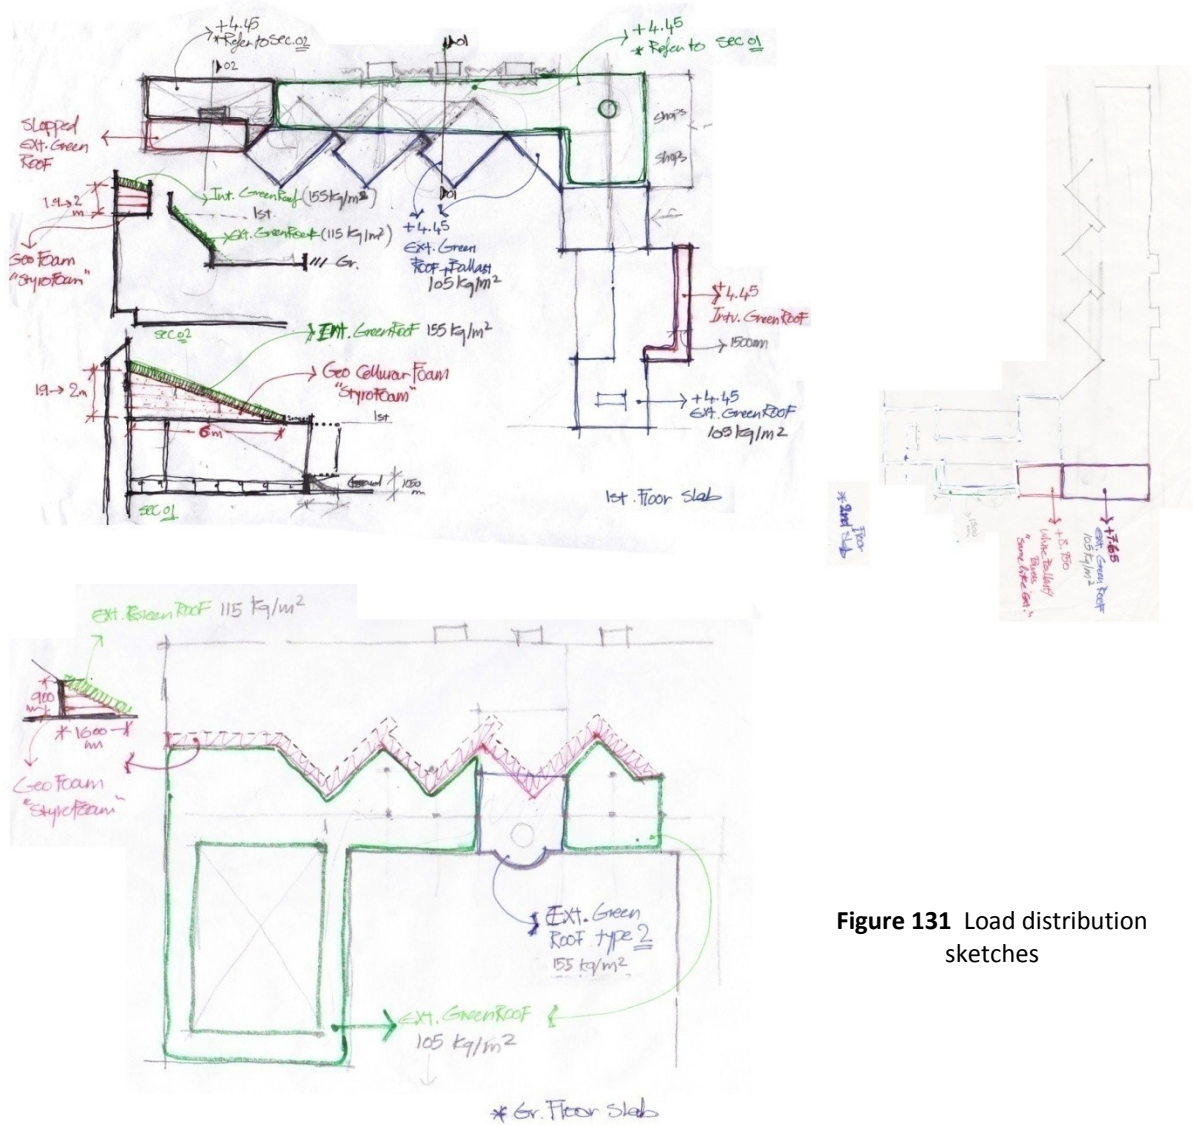 +4.45
* Refer to Sec.02
02
01
+4.45
* Refer to sec 01
Slopped
Ext. Green
Roof
shops
shops
Int. Green Roof (155 kg/m2)
1st.
Ext. Green Roof (115 kg/m2)
Gr.
1.9→2
m
Geo Foam
"Styro Foam"
sec 02
01
+4.45
Ext. Green
Roof + Ballast
105 kg/m2
+4.45
Intv. Green Roof
1500mm
+4.45
Ext. Green Roof
105 kg/m2
Int. Green Roof 155 kg/m2
Geo Cellurar Foam
"Styro Foam"
1.9→2m
6m
1st
Ground
1050
m
sec 01
1st. Floor Slab
* 2nd Floor
Slab
1500
+8.950
White Ballast
"same like Ext."
+7.65
Ext. Green Roof
105 kg/m2
Ext. Green Roof 115 kg/m2
900
m
* 1600
m
Geo Foam
"Styro Foam"
Ext. Green
Roof type 2
155 kg/m2
Ext. Green Roof
105 kg/m2
* Gr. Floor Slab
Figure 131 Load distribution
sketches